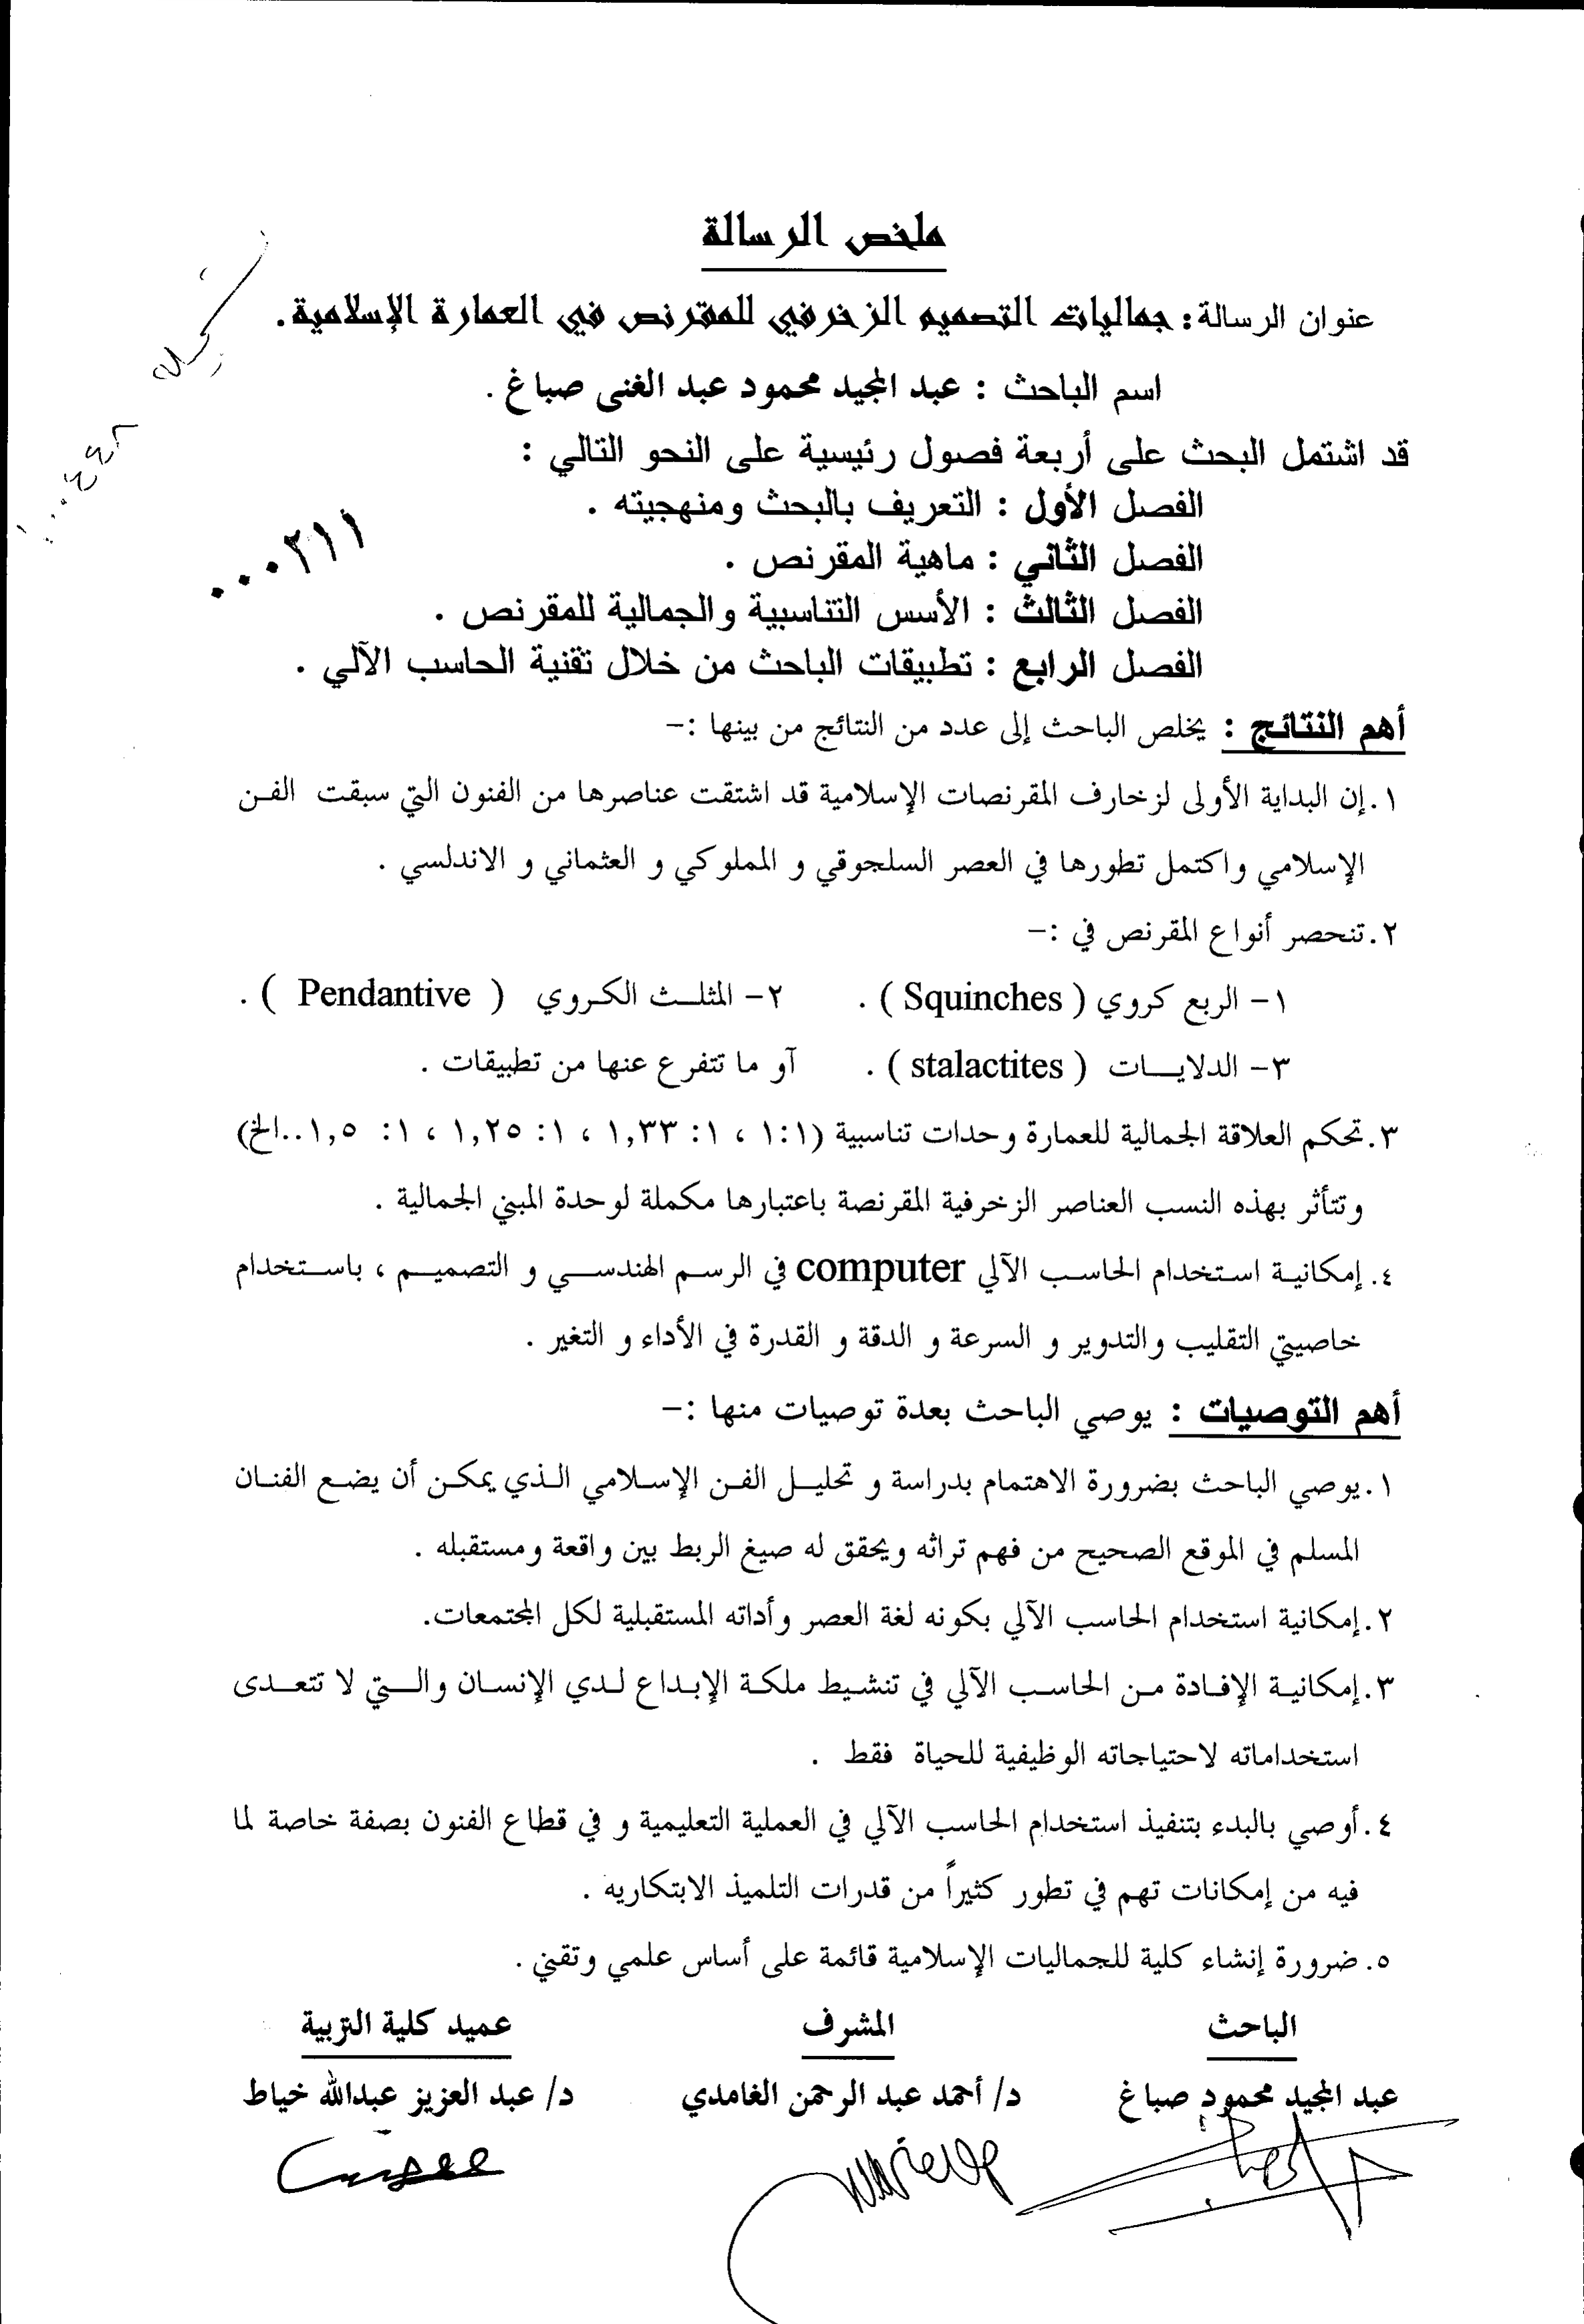 ملخص الرسالة
عنوان الرسالة : جماليات التصميم الزخرفي للمقرنص في العمارة الإسلامية .
اسم الباحث : عبد المجيد محمود عبد الغنى صباغ .
قد اشتمل البحث على أربعة فصول رئيسية على النحو التالي :
الفصل الأول : التعريف بالبحث ومنهجيته .
٠٠٠٢١١
الفصل الثاني : ماهية المقرنص .
الفصل الثالث : الأسس التناسبية والجمالية للمقرنص .
الفصل الرابع : تطبيقات الباحث من خلال تقنية الحاسب الآلي .
أهم النتائج : يخلص الباحث إلى عدد من النتائج من بينها :-
١. إن البداية الأولى لزخارف المقرنصات الإسلامية قد اشتقت عناصرها من الفنون التي سبقت الفن
الإسلامي واكتمل تطورها في العصر السلجوقي و المملوكي و العثماني و الاندلسي .
٢. تنحصر أنواع المقرنص في :-
١- الربع كروي ( Squinches ) . ٢- المثلث الكروي ( Pendantive ) .
٣- الدلايات ( stalactites ) . آو ما تتفرع عنها من تطبيقات .
٣. تحكم العلاقة الجمالية للعمارة وحدات تناسبية (١:١ ، ١: ١,٣٣ ، ١: ١,٢٥ ، ١: ١,٥..الخ)
وتتأثر بهذه النسب العناصر الزخرفية المقرنصة باعتبارها مكملة لوحدة المبني الجمالية .
٤. إمكانية استخدام الحاسب الآلي computer في الرسم الهندسي و التصميم ، باستخدام
خاصيتي التقليب والتدوير و السرعة و الدقة و القدرة في الأداء و التغير .
أهم التوصيات : يوصي الباحث بعدة توصيات منها :-
١. يوصي الباحث بضرورة الاهتمام بدراسة و تحليل الفن الإسلامي الذي يمكن أن يضع الفنان
المسلم في الموقع الصحيح من فهم تراثه ويحقق له صيغ الربط بين واقعة ومستقبله .
٢. إمكانية استخدام الحاسب الآلي بكونه لغة العصر وأداته المستقبلية لكل المجتمعات.
٣. إمكانية الإفادة من الحاسب الآلي في تنشيط ملكة الإبداع لدي الإنسان والتي لا تتعدى
استخداماته لاحتياجاته الوظيفية للحياة فقط .
٤. أوصي بالبدء بتنفيذ استخدام الحاسب الآلي في العملية التعليمية و في قطاع الفنون بصفة خاصة لما
فيه من إمكانات تهم في تطور كثيراً من قدرات التلميذ الابتكاريه .
٥. ضرورة إنشاء كلية للجماليات الإسلامية قائمة على أساس علمي وتقني .
الباحث المشرف عميد كلية التربية
عبد المجيد محمود صباغ د/ أحمد عبد الرحمن الغامدي د/ عبد العزيز عبدالله خياط